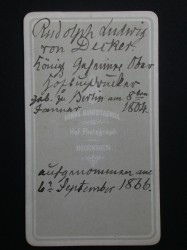 Rudolph Ludwig
von Decker.
König Geheimer Ober
Hofbuchdrucker
geb. zu Berlin am 8ten
Januar 1804.
Hof Photograph
aufgenommen am
6ten September 1866.